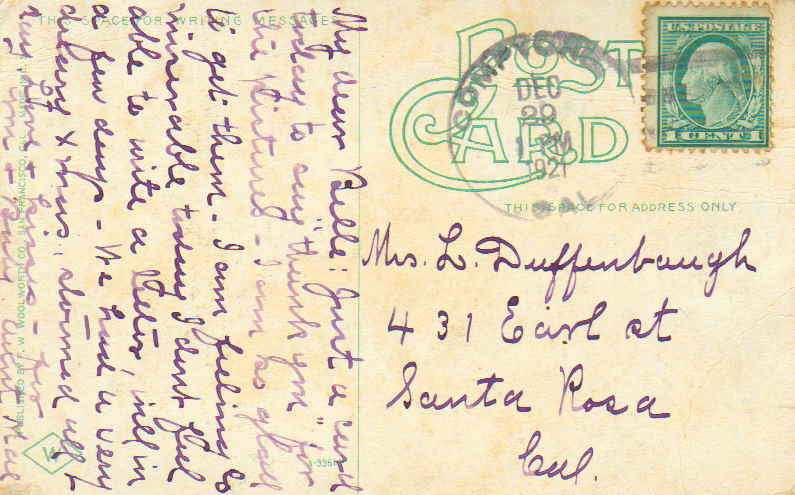 THIS SPACE FOR WRITING MESSAGES
POST CARD
COMPTON
DEC
29
PM
1921
U.S. POSTAGE
1 CENT 1
THIS SPACE FOR ADDRESS ONLY
Mrs. L. Duffenbaugh
431 Earl st
Santa Rosa
Cal.
My dear Belle: Just a card
today to say "thank you" for
the pictures - I am so glad
to get them - I am feeling so
miserable today I dont feel
able to write a letter, ill in
a few days - We had a very
dreary Xmas, stormed all
love & kisses - for
& baby. Aunt Mae
PUBLISHED BY F. W. WOOLWORTH CO., SAN FRANCISCO, CAL.
W